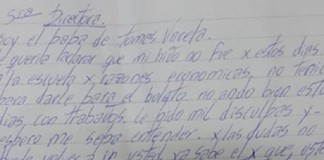 Sra Directora.
Soy el papá de Tomas Varela.
queria aclarar que mi hijo no fue x estos dias
a la escuela x razones economicas, no tenia
para darle para el boleto, no ando bien estos
dias con trabajos. le pido mil disculpas y
espero me sepa entender. x las dudas no
usted ya sabe el x que, usted